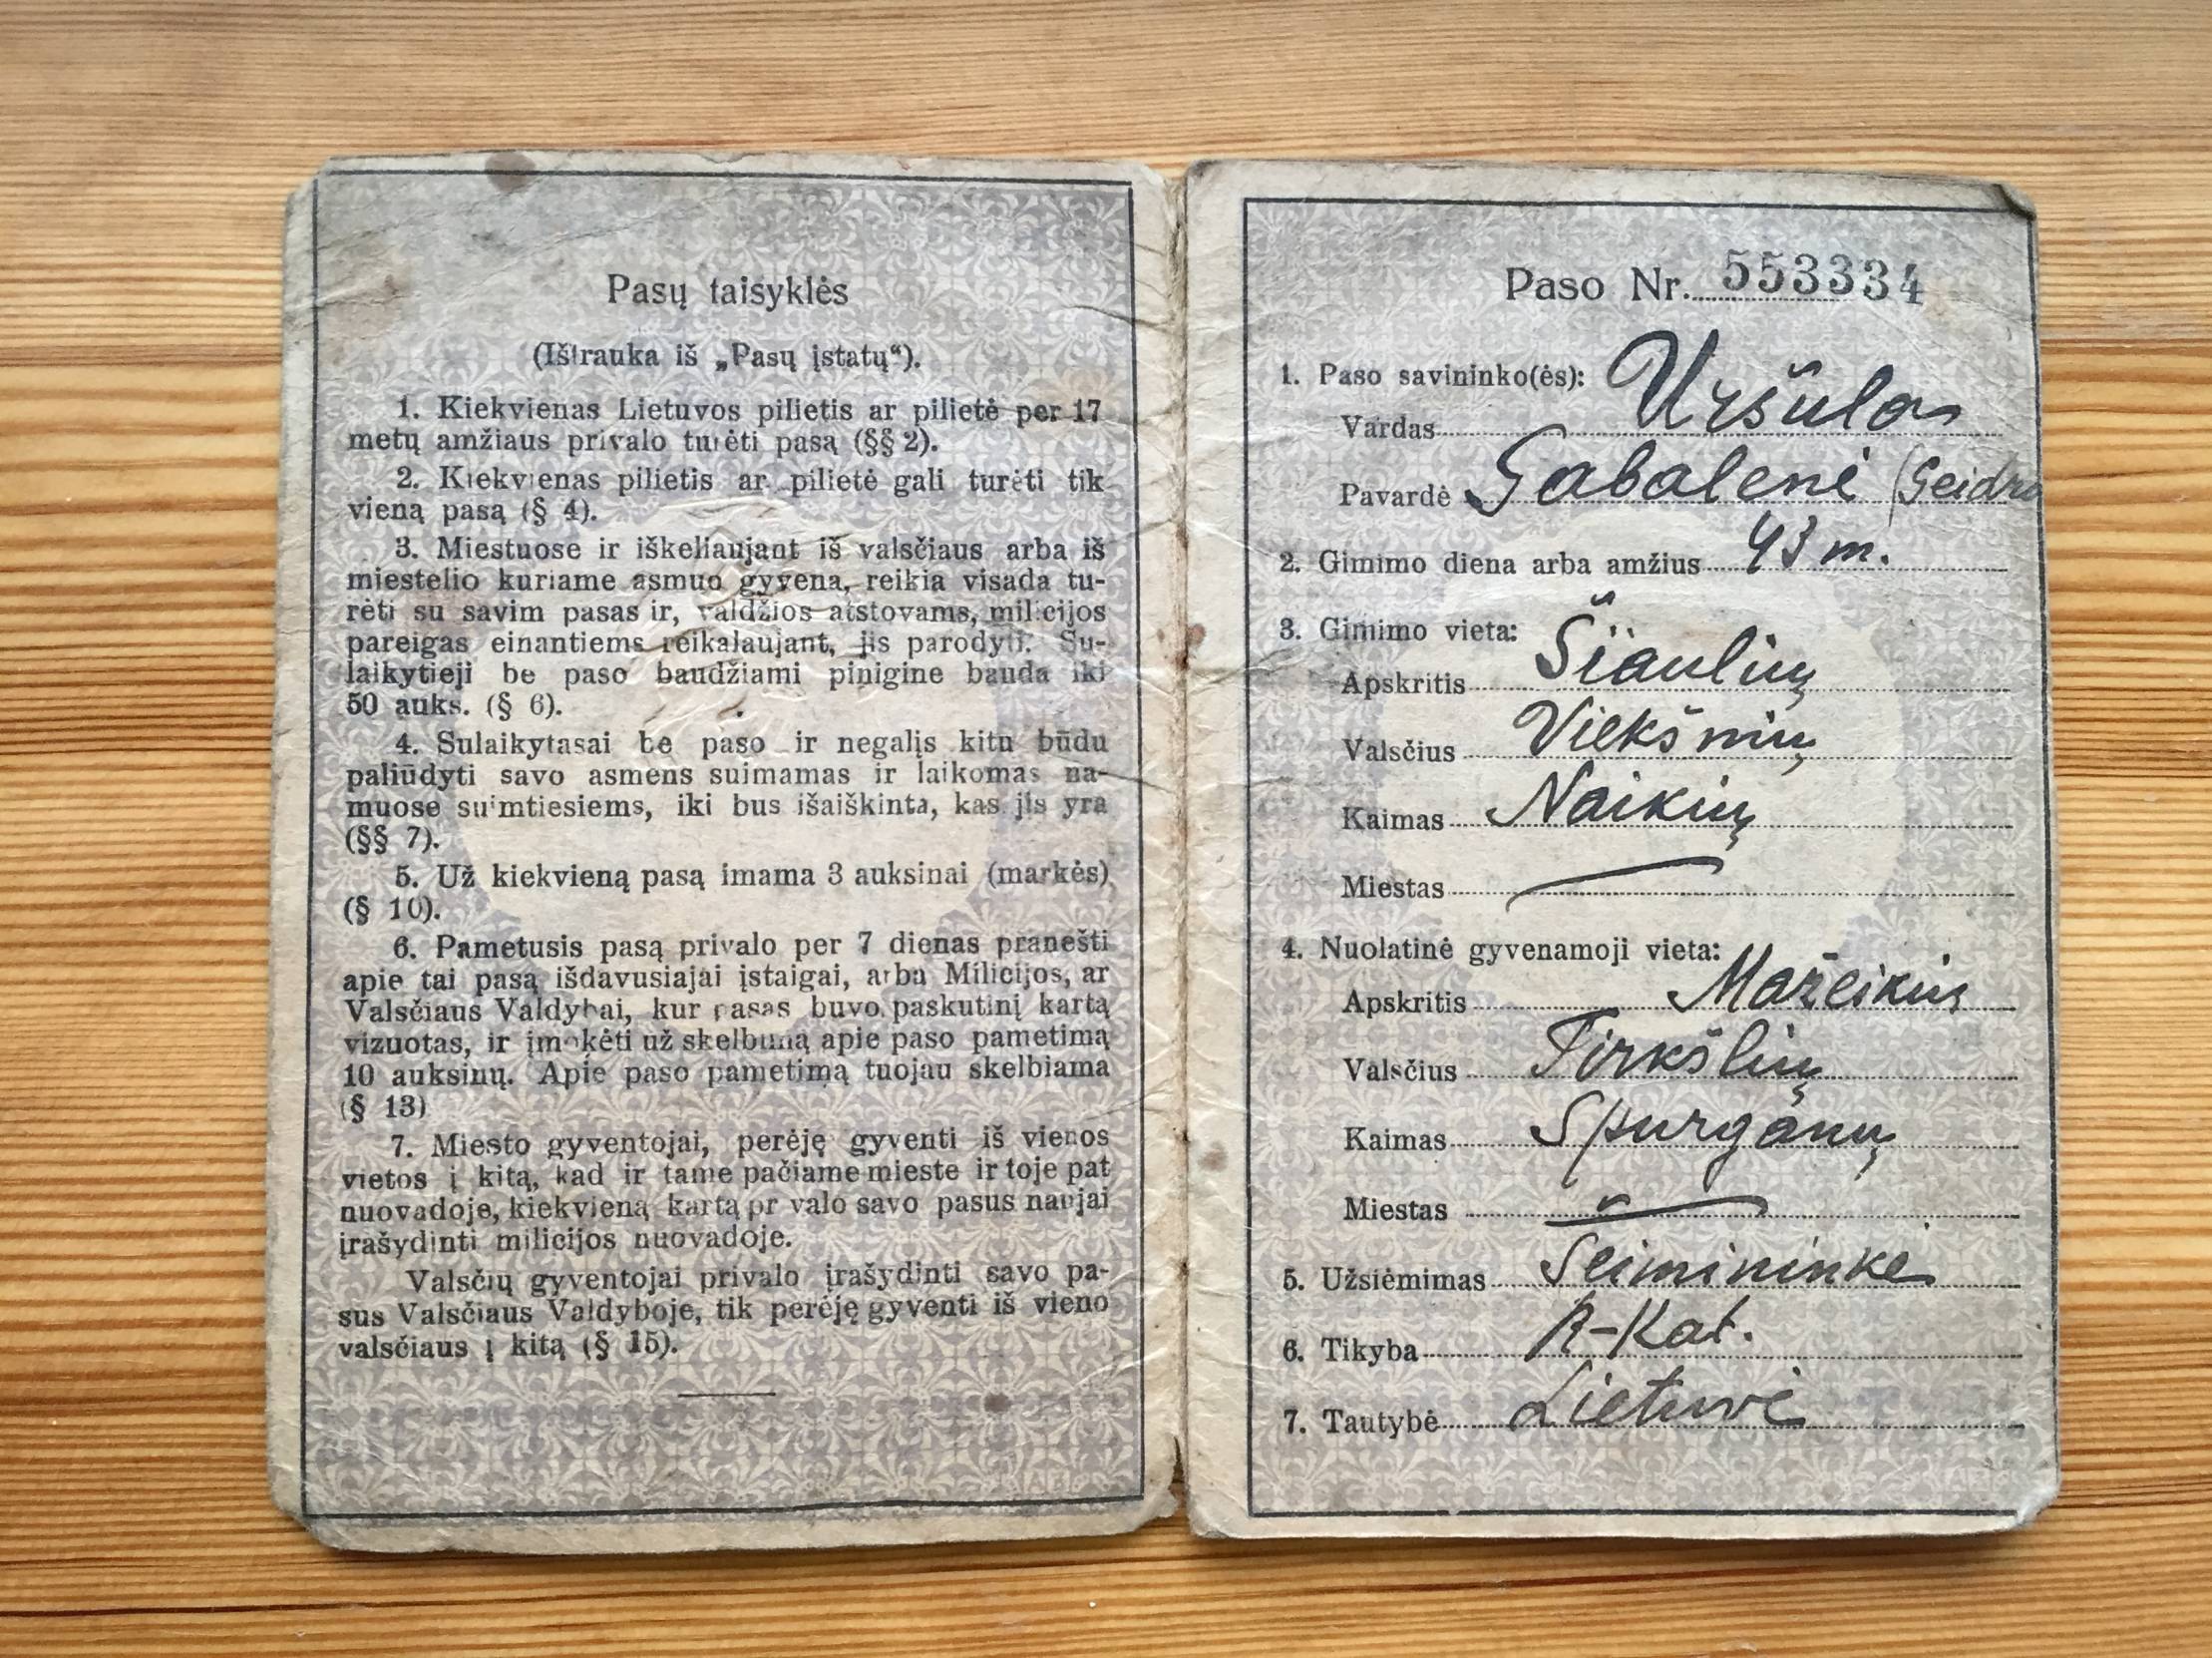 Pasų taisyklės
(Ištrauka iš „Pasų įstatų“).
1. Kiekvienas Lietuvos pilietis ar pilietė per 17
metų amžiaus privalo turėti pasą (§§ 2).
2. Kiekvienas pilietis ar pilietė gali turėti tik
vieną pasą (§ 4).
3. Miestuose ir iškeliaujant iš valsčiaus arba iš
miestelio kuriame asmuo gyvena, reikia visada tu-
rėti su savim pasas ir, valdžios atstovams, milicijos
pareigas einantiems reikalaujant, jis parodyti. Su-
laikytieji be paso baudžiami pinigine bauda iki
50 auks. (§ 6).
4. Sulaikytasai be paso ir negalįs kitu būdu
paliūdyti savo asmens suimamas ir laikomas na-
muose suimtiesiems, iki bus išaiškinta, kas jis yra
(§§ 7).
5. Už kiekvieną pasą imama 3 auksinai (markės)
(§ 10).
6. Pametusis pasą privalo per 7 dienas pranešti
apie tai pasą išdavusiajai įstaigai, arba Milicijos, ar
Valsčiaus Valdybai, kur pasas buvo paskutinį kartą
vizuotas, ir įmokėti už skelbimą apie paso pametimą
10 auksinų. Apie paso pametimą tuojau skelbiama
(§ 13)
7. Miesto gyventojai, perėję gyventi iš vienos
vietos į kitą, kad ir tame pačiame mieste ir toje pat
nuovadoje, kiekvieną kartą privalo savo pasus naujai
įrašydinti milicijos nuovadoje.
Valsčių gyventojai privalo įrašydinti savo pa-
sus Valsčiaus Valdyboje, tik perėję gyventi iš vieno
valsčiaus į kitą (§ 15).
Paso Nr. 553334
1. Paso savininko(ės):
Vardas Uršulos
Pavardė Gabalenė (Geidra
2. Gimimo diena arba amžius 43 m.
3. Gimimo vieta:
Apskritis Šiaulių
Valsčius Viekšnių
Kaimas Naikių
Miestas
4. Nuolatinė gyvenamoji vieta:
Apskritis Mažeikių
Valsčius Tirkšlių
Kaimas Spurganų
Miestas
5. Užsiėmimas Seimininkė
6. Tikyba R-Kat.
7. Tautybė Lietuvė